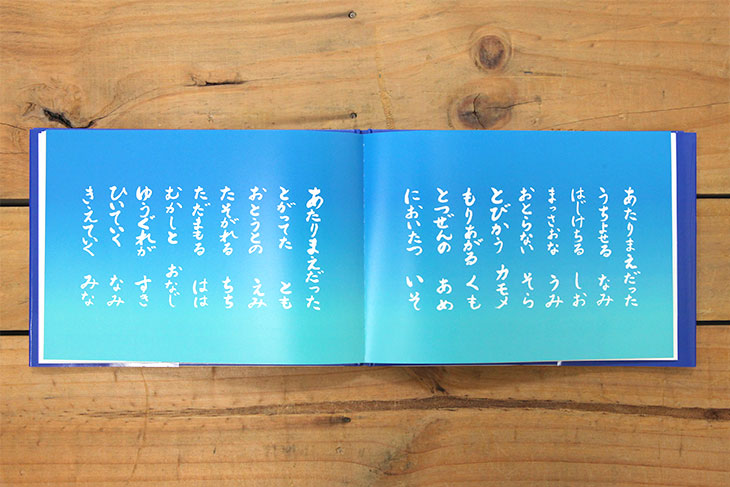 あたりまえだった
うちよせる なみ
はじけちる しお
まっさおな うみ
おとらない そら
とびかう カモメ
もりあがる くも
とつぜんの あめ
においたつ いそ
あたりまえだった
とがってた とも
おとうとの えみ
たそがれる ちち
ただまもる はは
むかしと おなじ
ゆうぐれが すき
ひいていく なみ
きえていく みな